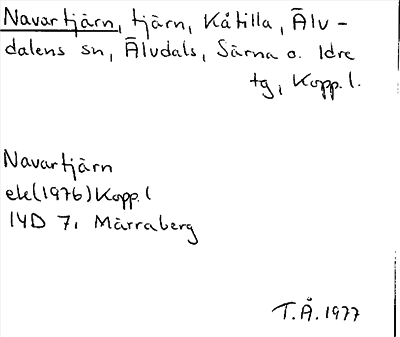 Navartjärn, tjärn, Kåtilla, Älv-
dalens sn, Älvdals, Särna o. Idre
tg, Kopp. l.
Navartjärn
ek(1976) Kopp. l
14D 7i Märraberg
T.Å. 1977